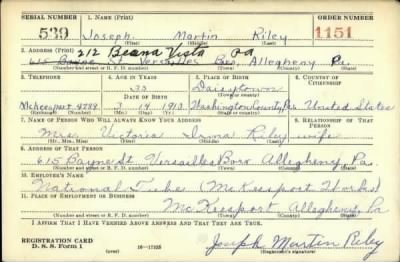 SERIAL NUMBER 1. NAME (Print) ORDER NUMBER
539 Joseph Martin Riley 1151
(First) (Middle) (Last)
2. ADDRESS (Print) 212 Beana Vista Pa
615 Bayne St Versailles Boro, Allegheny Pa.
(Number and street or R. F. D. number) (Town) (County) (State)
3. TELEPHONE 4. AGE IN YEARS 5. PLACE OF BIRTH 6. COUNTRY OF CITIZENSHIP
Daisytown
DATE OF BIRTH
McKeesport 4789 3 14 1910 Washington County Pa United States
(Exchange) (Number) (Mo.) (Day) (Yr.) (State or country)
7. NAME OF PERSON WHO WILL ALWAYS KNOW YOUR ADDRESS 8. RELATIONSHIP OF THAT PERSON
Mrs. Victoria Irma Riley wife
(Mr., Mrs., Miss) (First) (Middle) (Last)
9. ADDRESS OF THAT PERSON
615 Bayne St Versailles Boro Allegheny Pa.
(Number and street or R. F. D. number) (Town) (County) (State)
10. EMPLOYER'S NAME
National Tube (McKeesport Works)
11. PLACE OF EMPLOYMENT OR BUSINESS
McKeesport Allegheny, Pa
(Number and street or R. F. D. number) (Town) (County) (State)
I AFFIRM THAT I HAVE VERIFIED ABOVE ANSWERS AND THAT THEY ARE TRUE.
REGISTRATION CARD
D. S. S. Form 1 (over) 16—17105 Joseph Martin Riley